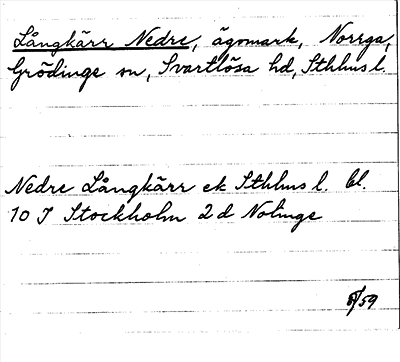 Långkärr Nedre, ägomark, Norrga,
Grödinge sn, Svartlösa hd, Sthlms l.
Nedre Långkärr ek Sthlms l. bl.
10 I Stockholm 2 d Nolinge
8/59